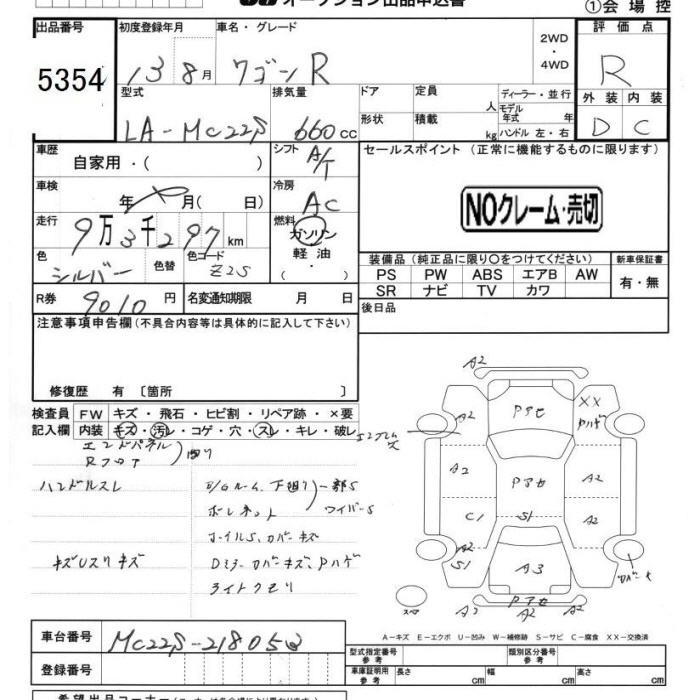 オークション出品申込書
①会場控
出品番号 初度登録年月 車名・グレード 評価点
5354 13 8月 ワゴンR 2WD・4WD R
型式 排気量 ドア 定員 人 ディーラー・並行 外装 内装
LA-MC22S 660cc 形状 積載 kg モデル年式 年 ハンドル 左・右 D C
車歴 自家用・( ) シフト A/T セールスポイント (正常に機能するものに限ります)
車検 年 月( 日) 冷房 AC NOクレーム・売切
走行 9万3千297km 燃料 ガソリン 軽油・( )
色 シルバー 色替 色コード Z2S
装備品 (純正品に限り○をつけてください) 新車保証書
PS PW ABS エアB AW 有・無
SR ナビ TV カワ
R券 9010円 名変通知期限 月 日 後日品
注意事項申告欄 (不具合内容等は具体的に記入して下さい)
修復歴 有 〔箇所 〕
検査員 FW キズ・飛石・ヒビ割・リペア跡・×要
記入欄 内装 キズ・汚レ・コゲ・穴・スレ・キレ・破レ
エンドパネル
Rフロア
ハンドルスレ 下廻り 一部S
ボンネット ワイパーS
ホイルS、カバーキズ
キズUスリキズ Dミラーカバーキズ、Pハゲ
ライトクモリ
A2
A2 Pアセ XX
Pハゲ
A2 Pアセ A2
C1 S1 A2
A2
S1 A3
Pアセ
A2 A2
車台番号 MC22S-218053
登録番号
A-キズ E-エクボ U-凹み W-補修跡 S-サビ C-腐食 XX-交換済
型式指定番号 参考 類別区分番号 参考
車庫証明用 参考 長さ cm 幅 cm 高さ cm